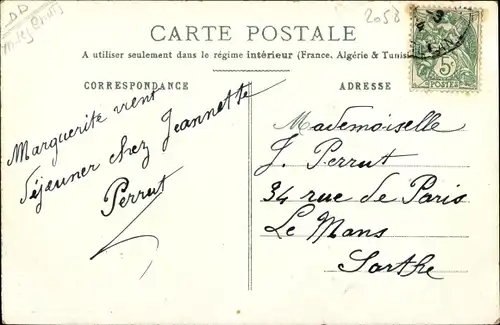 2058
CARTE POSTALE
A utiliser seulement dans le régime intérieur (France, Algérie & Tunisie
5c
POSTES
CORRESPONDANCE
Marguerite vient
déjeuner chez Jeannette
Perrut
ADRESSE
Mademoiselle
J. Perrut
34 rue de Paris
Le Mans
Sarthe